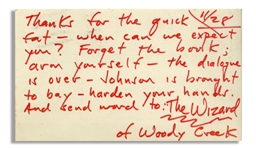 Thanks for the quick 11/28
fat — when can we expect
you? Forget the book;
arm yourself — the dialogue
is over — Johnson is brought
to bay — harden your hands.
And send word to: The Wizard
of Woody Creek